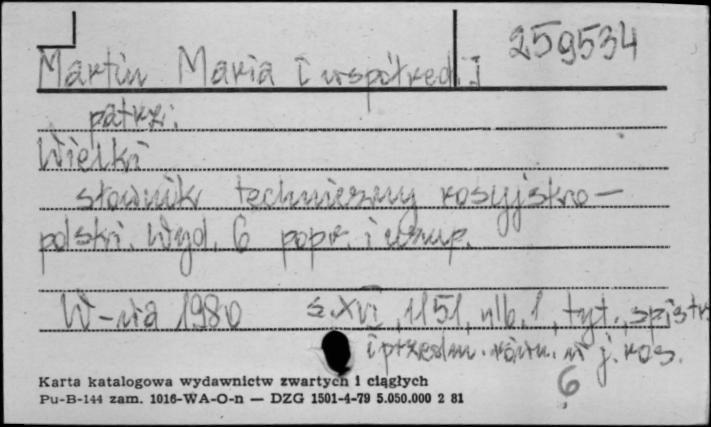 259534
Martin Maria i współred.
patrz:
Wielki
słownik techniczny rosyjsko-
polski. Wyd. 6 popr. i uzup.
W-wa 1980 s. XVI, 1151, nlb. 1, tyt., spis tr.
i przedm. równ. w j. ros.
6
Karta katalogowa wydawnictw zwartych i ciągłych
Pu-B-144 zam. 1016-WA-O-n — DZG 1501-4-79 5.050.000 2 81